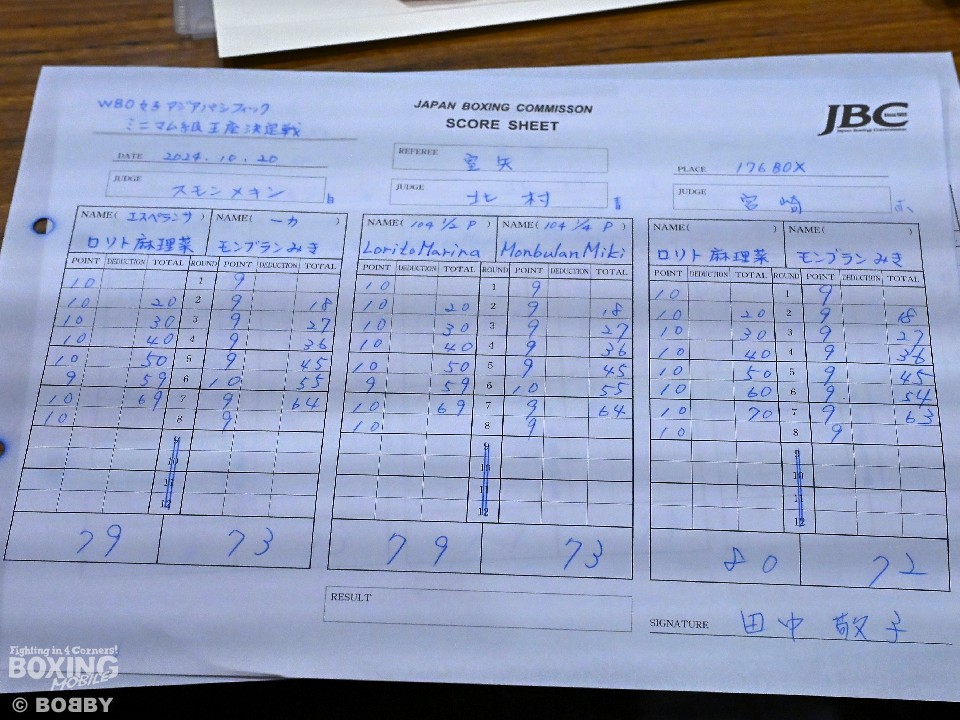 WBO女子アジアパシフィック
ミニマム級王座決定戦
JAPAN BOXING COMMISSON
SCORE SHEET
JBC
DATE 2024.10.20
REFEREE 室矢
PLACE 176BOX
JUDGE スモンメキン
JUDGE 北村
JUDGE 宮崎
NAME( エスペランサ ) NAME( 一力 ) NAME( 104 1/2 P ) NAME( 104 1/4 P ) NAME( ) NAME( )
ロリト麻理菜 モンブランみき LoritoMarina MonbulanMiki ロリト麻理菜 モンブランみき
POINT DEDUCTION TOTAL ROUND POINT DEDUCTION TOTAL POINT DEDUCTION TOTAL ROUND POINT DEDUCTION TOTAL POINT DEDUCTION TOTAL ROUND POINT DEDUCTION TOTAL
10 1 9 10 1 9 10 1 9
10 20 2 9 18 10 20 2 9 18 10 20 2 9 18
10 30 3 9 27 10 30 3 9 27 10 30 3 9 27
10 40 4 9 36 10 40 4 9 36 10 40 4 9 36
10 50 5 9 45 10 50 5 9 45 10 50 5 9 45
9 59 6 10 55 9 59 6 10 55 10 60 6 9 54
10 69 7 9 64 10 69 7 9 64 10 70 7 9 63
10 8 9 10 8 9 10 8 9
9 9 9
10 10 10
11 11 11
12 12 12
79 73 79 73 80 72
RESULT
SIGNATURE 田中敬子
Fighting in 4 Corners!
BOXING
MOBILE
© BOBBY